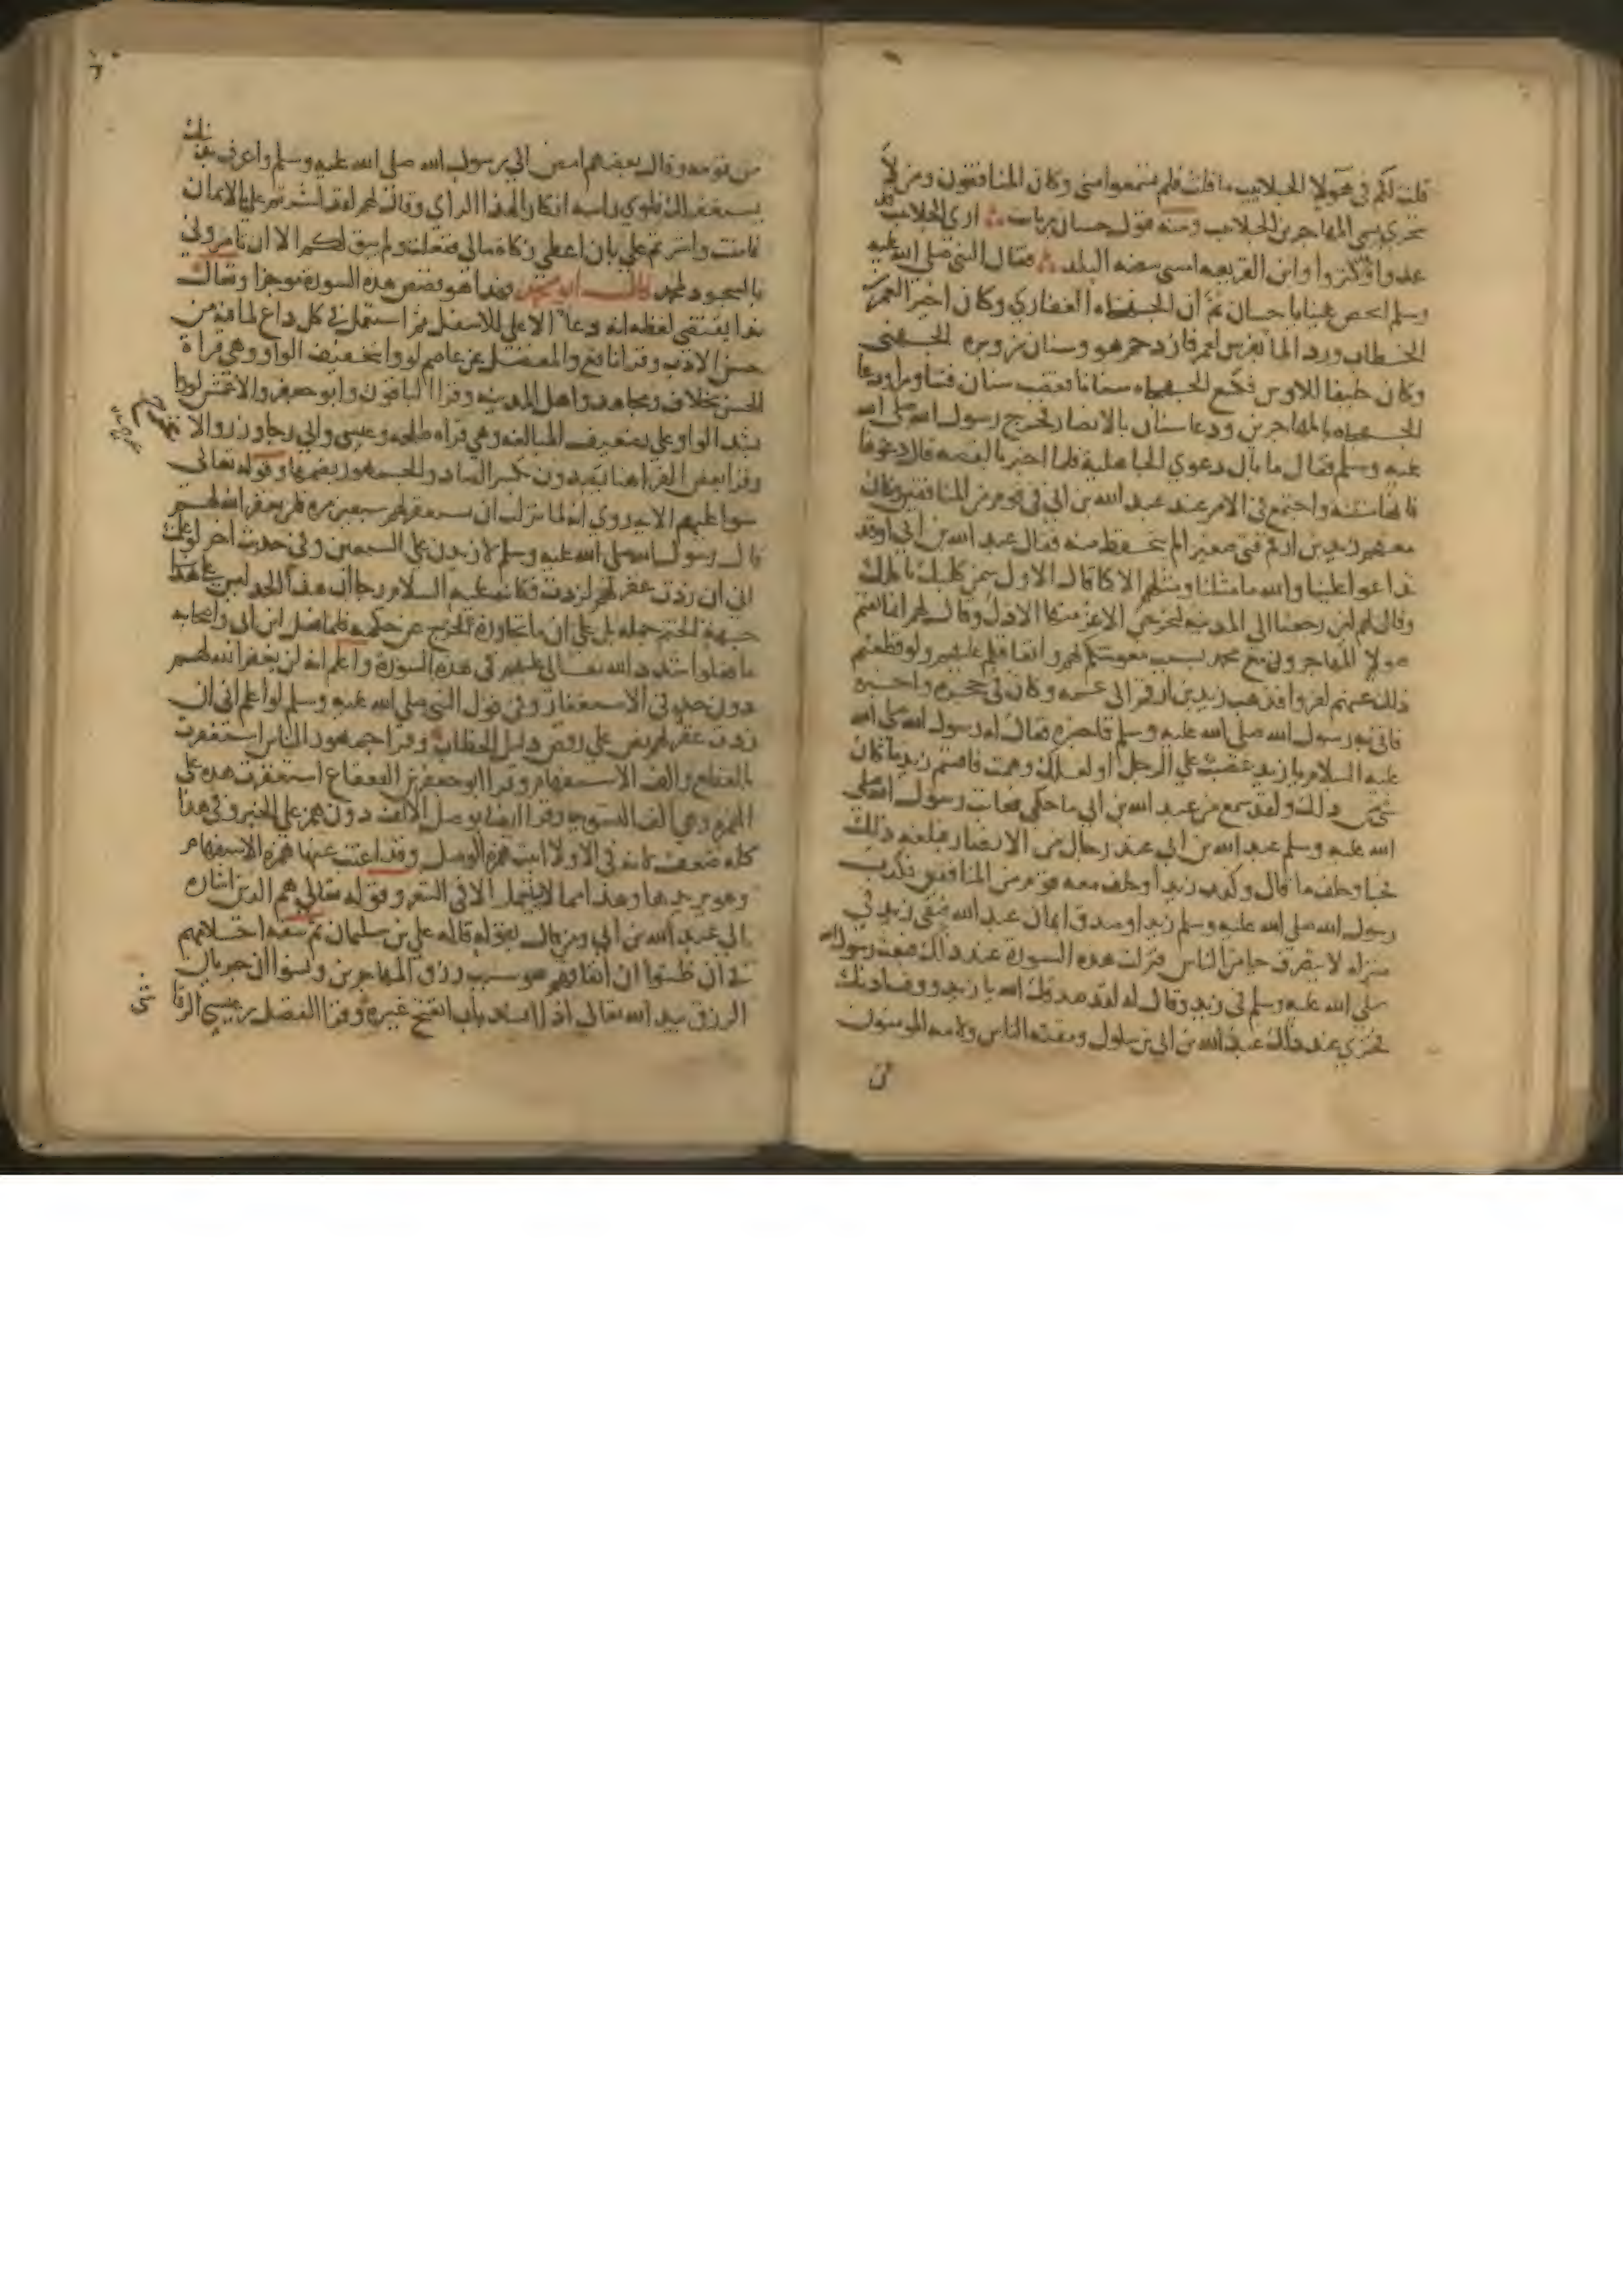 قلت لكم في هولا الجلابيب ما قلت فلم تسمعوا مني وكان المنافقون ومن لا
يتحرى يسمي المهاجرين الجلابيب ومنه قول حسان بن ثابت ارى الجلابيب قد
عزوا وقد كثروا وابن الفريعة امسى بيضة البلد فقال النبي صلى الله عليه
وسلم اتحض علينا يا حسان ثم أن الجهجاه الغفاري وكان اجيرا لعمر بن
الخطاب ورد الما بفرس لعمر فازدحم هو وسنان بن وبرة الجهني
وكان حليفا للاوس فكسع الجهجاه سنانا فغضب سنان فتثاورا ودعا
الجهجاه بالمهاجرين ودعا سنان بالانصار فخرج رسول الله صلى الله
عليه وسلم فقال ما بال دعوي الجاهلية فلما اخبر بالقصه قال دعوها
فانها منتنة واجتمع في الامر عند عبد الله بن ابي في قوم من المنافقين وكان
معهم زيد بن ارقم فتى صغير لم يتحفظ منه فقال عبد الله بن ابي اوقد
تداعوا علينا والله ما مثلنا ومثلهم الا كما قال الاول سمن كلبك ياكلك
وقال لهم لئن رجعنا الى المدينه ليخرجن الاعز منها الاذل وقال لهم انما يقيم
هولا المهاجرون مع محمد بسبب معونتكم لهم وانفاقكم عليهم ولو قطعتم
ذلك عنهم لفروا فذهب زيد بن ارقم الى عمه وكان في حجره واخبره
فاتى به رسول الله صلى الله عليه وسلم فاخبره فقال له رسول الله صلى الله
عليه السلام يا زيد غضبت علي الرجل او لعلك وهمت فاقسم زيد ما كان
شي من ذلك ولقد سمع من عبد الله بن ابي ما حكى فعاتب رسول الله صلى
الله عليه وسلم عبد الله بن ابي عند رجال من الانصار فبلغه ذلك
فجا وحلف ما قال وكذب زيدا وحلف معه قوم من المنافقين فكذب
رسول الله صلى الله عليه وسلم زيدا وصدق ايمان عبد الله فبقى زيد في
منزله لا يتصرف حيا من الناس فنزلت هذه السورة عند ذلك فبعث رسول الله
صلى الله عليه وسلم في زيد وقال له لقد صدقك الله يا زيد ووفت اذنك
فخزي عند ذلك عبد الله بن ابي بن سلول ومقته الناس ولامه المومنون
من قومه وقال بعضهم امض الي رسول الله صلى الله عليه وسلم واعترف بذنبك
يستغفر لك فلوي راسه انكارا لهذا الراي وقال لهم لقد اشرتم علي بالايمان
فامنت واشرتم علي بان اعطي زكاة مالي ففعلت ولم يبق لكم الا ان تامروني
بالسجود لمحمد قال ابو محمد فهذا هو قصص هذه السورة موجزا وتعال
ندا يقتضي لفظه انه دعا الاعلي للاسفل ثم استعمل في كل داع لما فيه من
حسن الادب وقرا نافع والمفضل عن عاصم لووا بتخفيف الواو وهي قراة
الحسن بخلاف ومجاهد واهل المدينه وقرا الباقون وابو جعفر والاعمش لووا
بشد الواو علي تضعيف المبالغه وهي قراه طلحه وعيسى وابي رجا وزر والاعرج
وقرا بعض القرا هنا يصدون بكسر الصاد والجمهور بضمها وقوله تعالى
سوا عليهم الايه روي انه لما نزلت ان تستغفر لهم سبعين مره فلن يغفر الله لهم
قال رسول الله صلى الله عليه وسلم لازيدن على السبعين وفي حديث اخر لو علمت
اني ان زدت غفر لهم لزدت فكانه عليه السلام رجا ان هذا الحد ليس على هذا
جهة الحتم جمله بل على ان ما تجاوزه لخرج عن حكمه فلما فعل ابن ابي واصحابه
ما فعلوا شدد الله تعالى عليهم في هذه السورة واعلم انه لن يغفر الله لهم
دون حد في الاستغفار وفي قول النبي صلى الله عليه وسلم لو اعلم اني ان
زدت غفر لهم نص علي رفض دليل الخطاب وقرا جمهور الناس استغفرت
بالقطع والف الاستفهام وقرا ابو جعفر بن القعقاع استغفرت بمده على
الهمزة وهي الف التسويه وقرا ايضا بوصل الالف دون همز على الخبر وفي هذا
كله ضعف لانه في الاولى اثبت همزة الوصل وقد اغنت عنها همزة الاستفهام
وهو يريدها وهذا مما لا يستعمل الا في الشعر وقوله تعالى هم الذين اشاره
الى عبد الله بن ابي ومن قال بقوله قاله علي بن سليمان ثم سفه احلامهم
في ان ظنوا ان انفاقهم هو سبب رزق المهاجرين ونسوا ان جريان
الرزق بيد الله تعالى اذا انسد باب انفتح غيره وقرا الفضل بن عيسى الرقا
شي